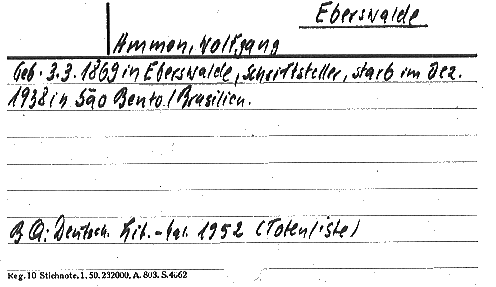 Eberswalde
Ammon, Wolfgang
Geb. 3.3.1869 in Eberswalde, Schriftsteller, starb im Dez.
1938 in São Bento/Brasilien.
BQ: Deutsch. Lit.-Kal. 1952 (Totenliste)
Reg. 10 Stichnote. 1. 50. 232000. A. 803. S. 4662